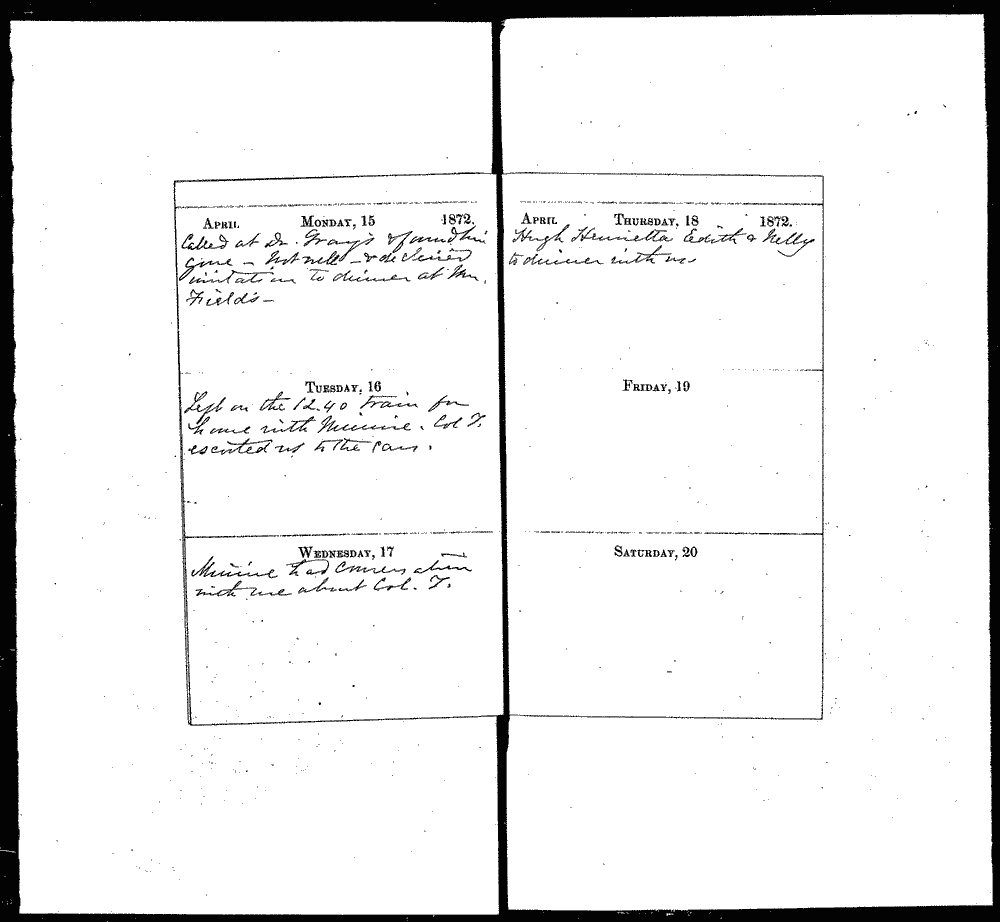 APRIL MONDAY, 15 1872.
Called at Dr. Gray's & found him
gone - Not well - & declined
invitation to dinner at Mr.
Fields -
TUESDAY, 16
Left on the 12.40 train for
home with Minnie. Col T.
escorted us to the cars.
WEDNESDAY, 17
Minnie had conversation
with me about Col. T.
APRIL THURSDAY, 18 1872.
Hugh Henrietta Edith & Nelly
to dinner with us
FRIDAY, 19
SATURDAY, 20